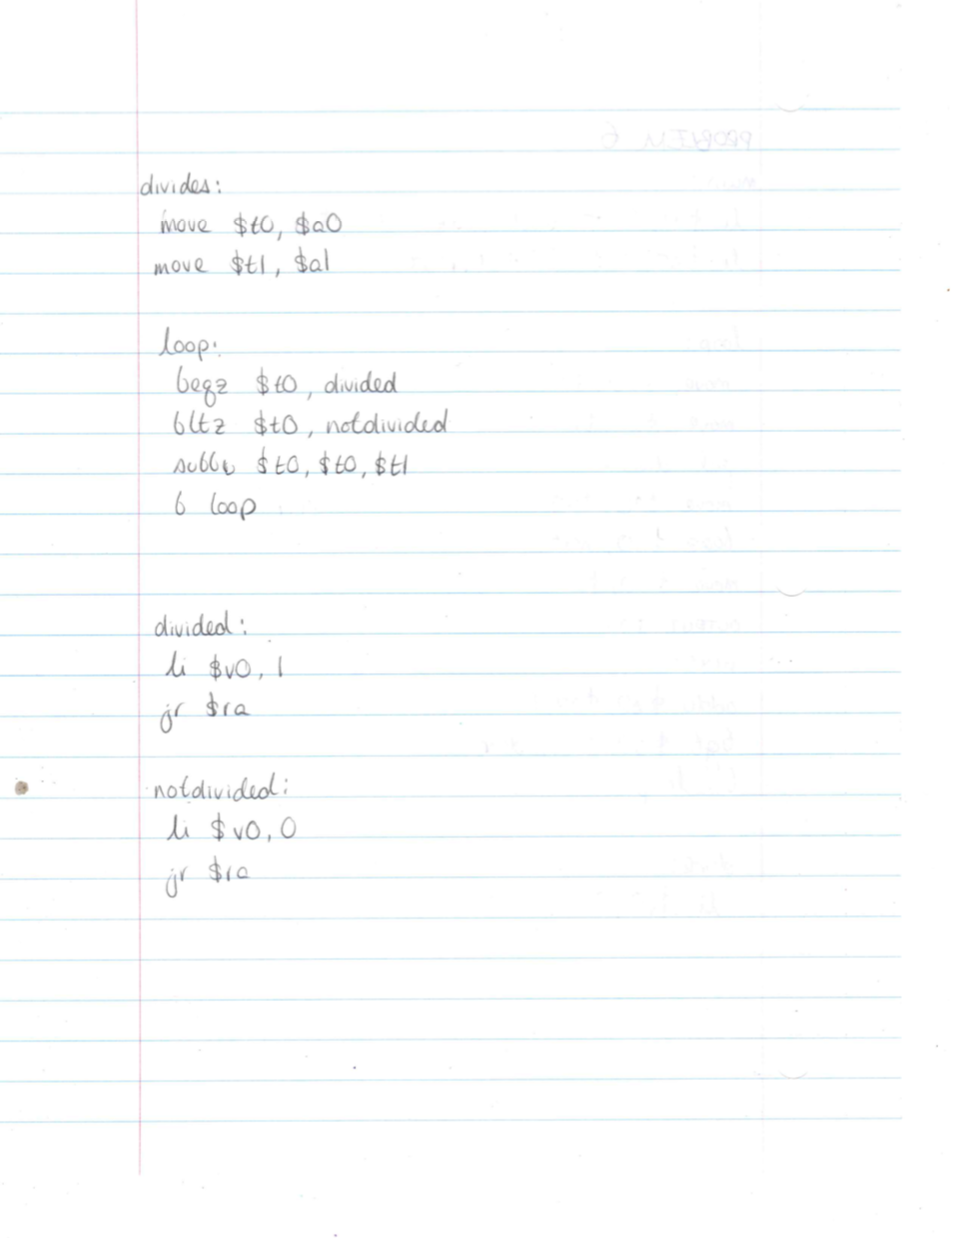 divides:
move $t0, $a0
move $t1, $a1
loop:
beqz $t0, divided
bltz $t0, notdivided
subu $t0, $t0, $t1
b loop
divided:
li $v0, 1
jr $ra
notdivided:
li $v0, 0
jr $ra